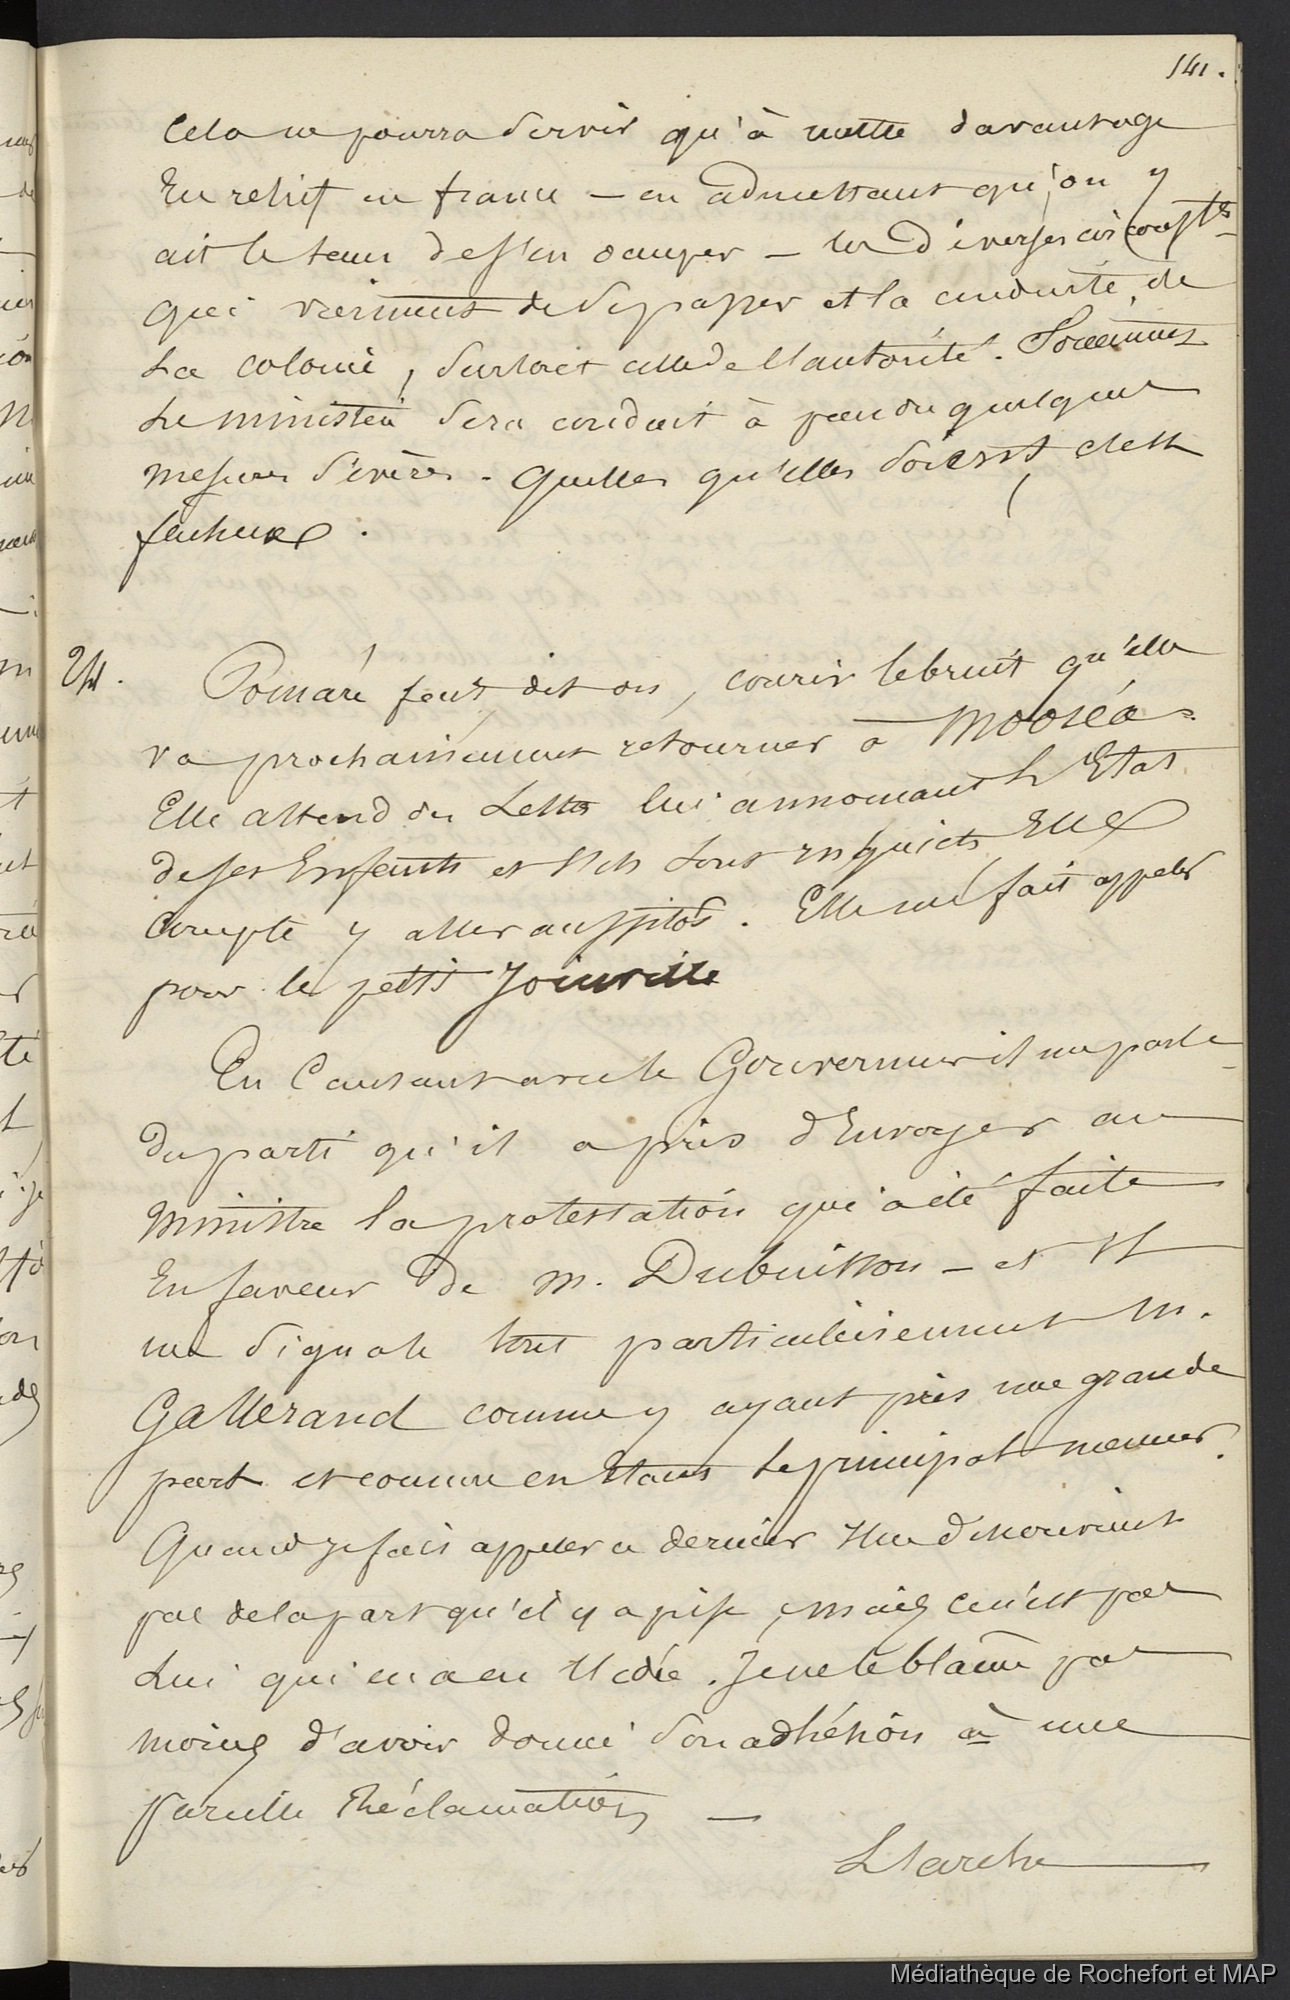 141.
Cela ne pourra servir qu'à mettre davantage
En relief en france - en admettant qu'on y
ait le tems de s'en occuper - les diverses circonstes
qui viennent de se passer et la conduite de
La colonie, surtout celle de l'autorité.
Le ministère sera conduit à prendre quelques
mesures sévères. Quelles qu'elles soient, c'est
facheux.
24. Pomaré fait dit on, courir le bruit qu'elle
va prochainement retourner à Mooréa.
Elle attend des Lettres lui annonçant l'Etat
de ses Enfants et s'ils sont inquiets Elle
compte y aller aussitôt. Elle me fait appeler
pour le petit Joinville
En Causant avec le Gouverneur il me parle
du parti qu'il a pris d'Envoyer au
Ministre la protestation qui a été faite
En faveur de M. Dubuisson - et Il
me signale tout particulièrement M.
Gallerand comme y ayant pris une grande
part et comme en étant le principal meneur.
Quand je fais appeler ce dernier Il ne disconvient
pas de la part qu'il y a prise, mais ce n'est pas
Lui qui en a eu l'idée. Je ne le blâme pas
moins d'avoir donné son adhésion à une
pareille Réclamation —